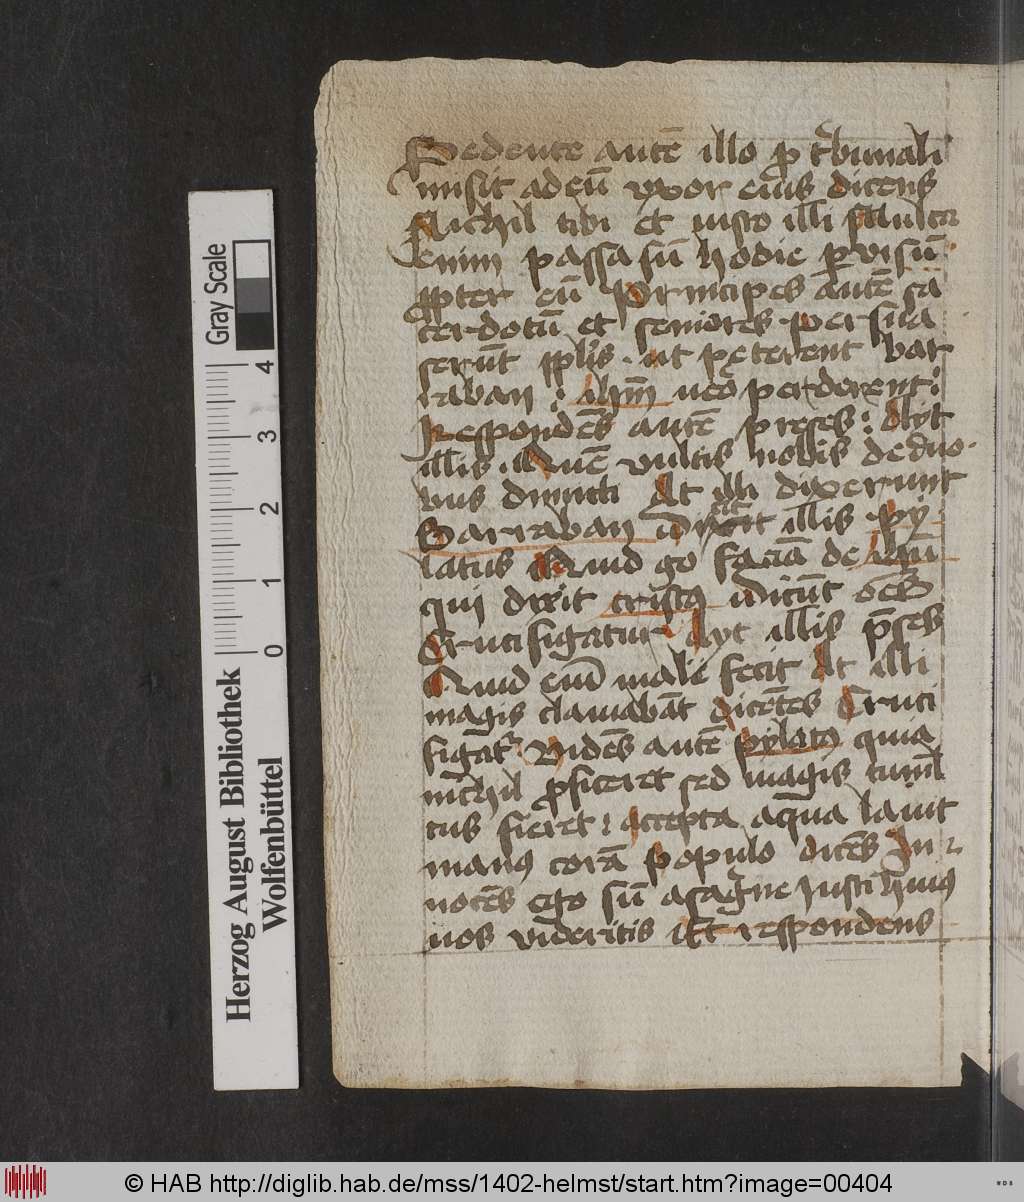 Sedente autē illo p̱ tͥbunali
misit ad eū vxor eius dicens
Nichil tibi et iusto illi Multa
enim passa sū hodie ꝑ visū
ꝓpter eū Principes autē sa
cerdotū et seniores persua
serūt pplis . ut peterent bar
raban : ihm̄ vero perderent :
Respondēs autē preses : Ayt
illis . Quē vultis vobis de duo
bus dimitti At illi dixerunt
Barraban dixit illis . py
latus Quid gͦ faciā de ihū
qui dicit cristꝰ dicūt oēs
Crucifigatur Ayt illis p̄ses
Quid eni male fecit At illi
magis clamabāt dicētes Cruci
figatͬ Vidēs autē pylatꝰ quia
nichil ꝓficeret sed magis tumͭl
tus fieret : accepta aqua lavit
manꝰ corā populo dicēs In
nocēs ego sū a sāgͥne iusti huiꝰ
vos videritis Et respondens
Gray Scale
4
3
2
1
0
Herzog August Bibliothek
Wolfenbüttel
© HAB http://diglib.hab.de/mss/1402-helmst/start.htm?image=00404